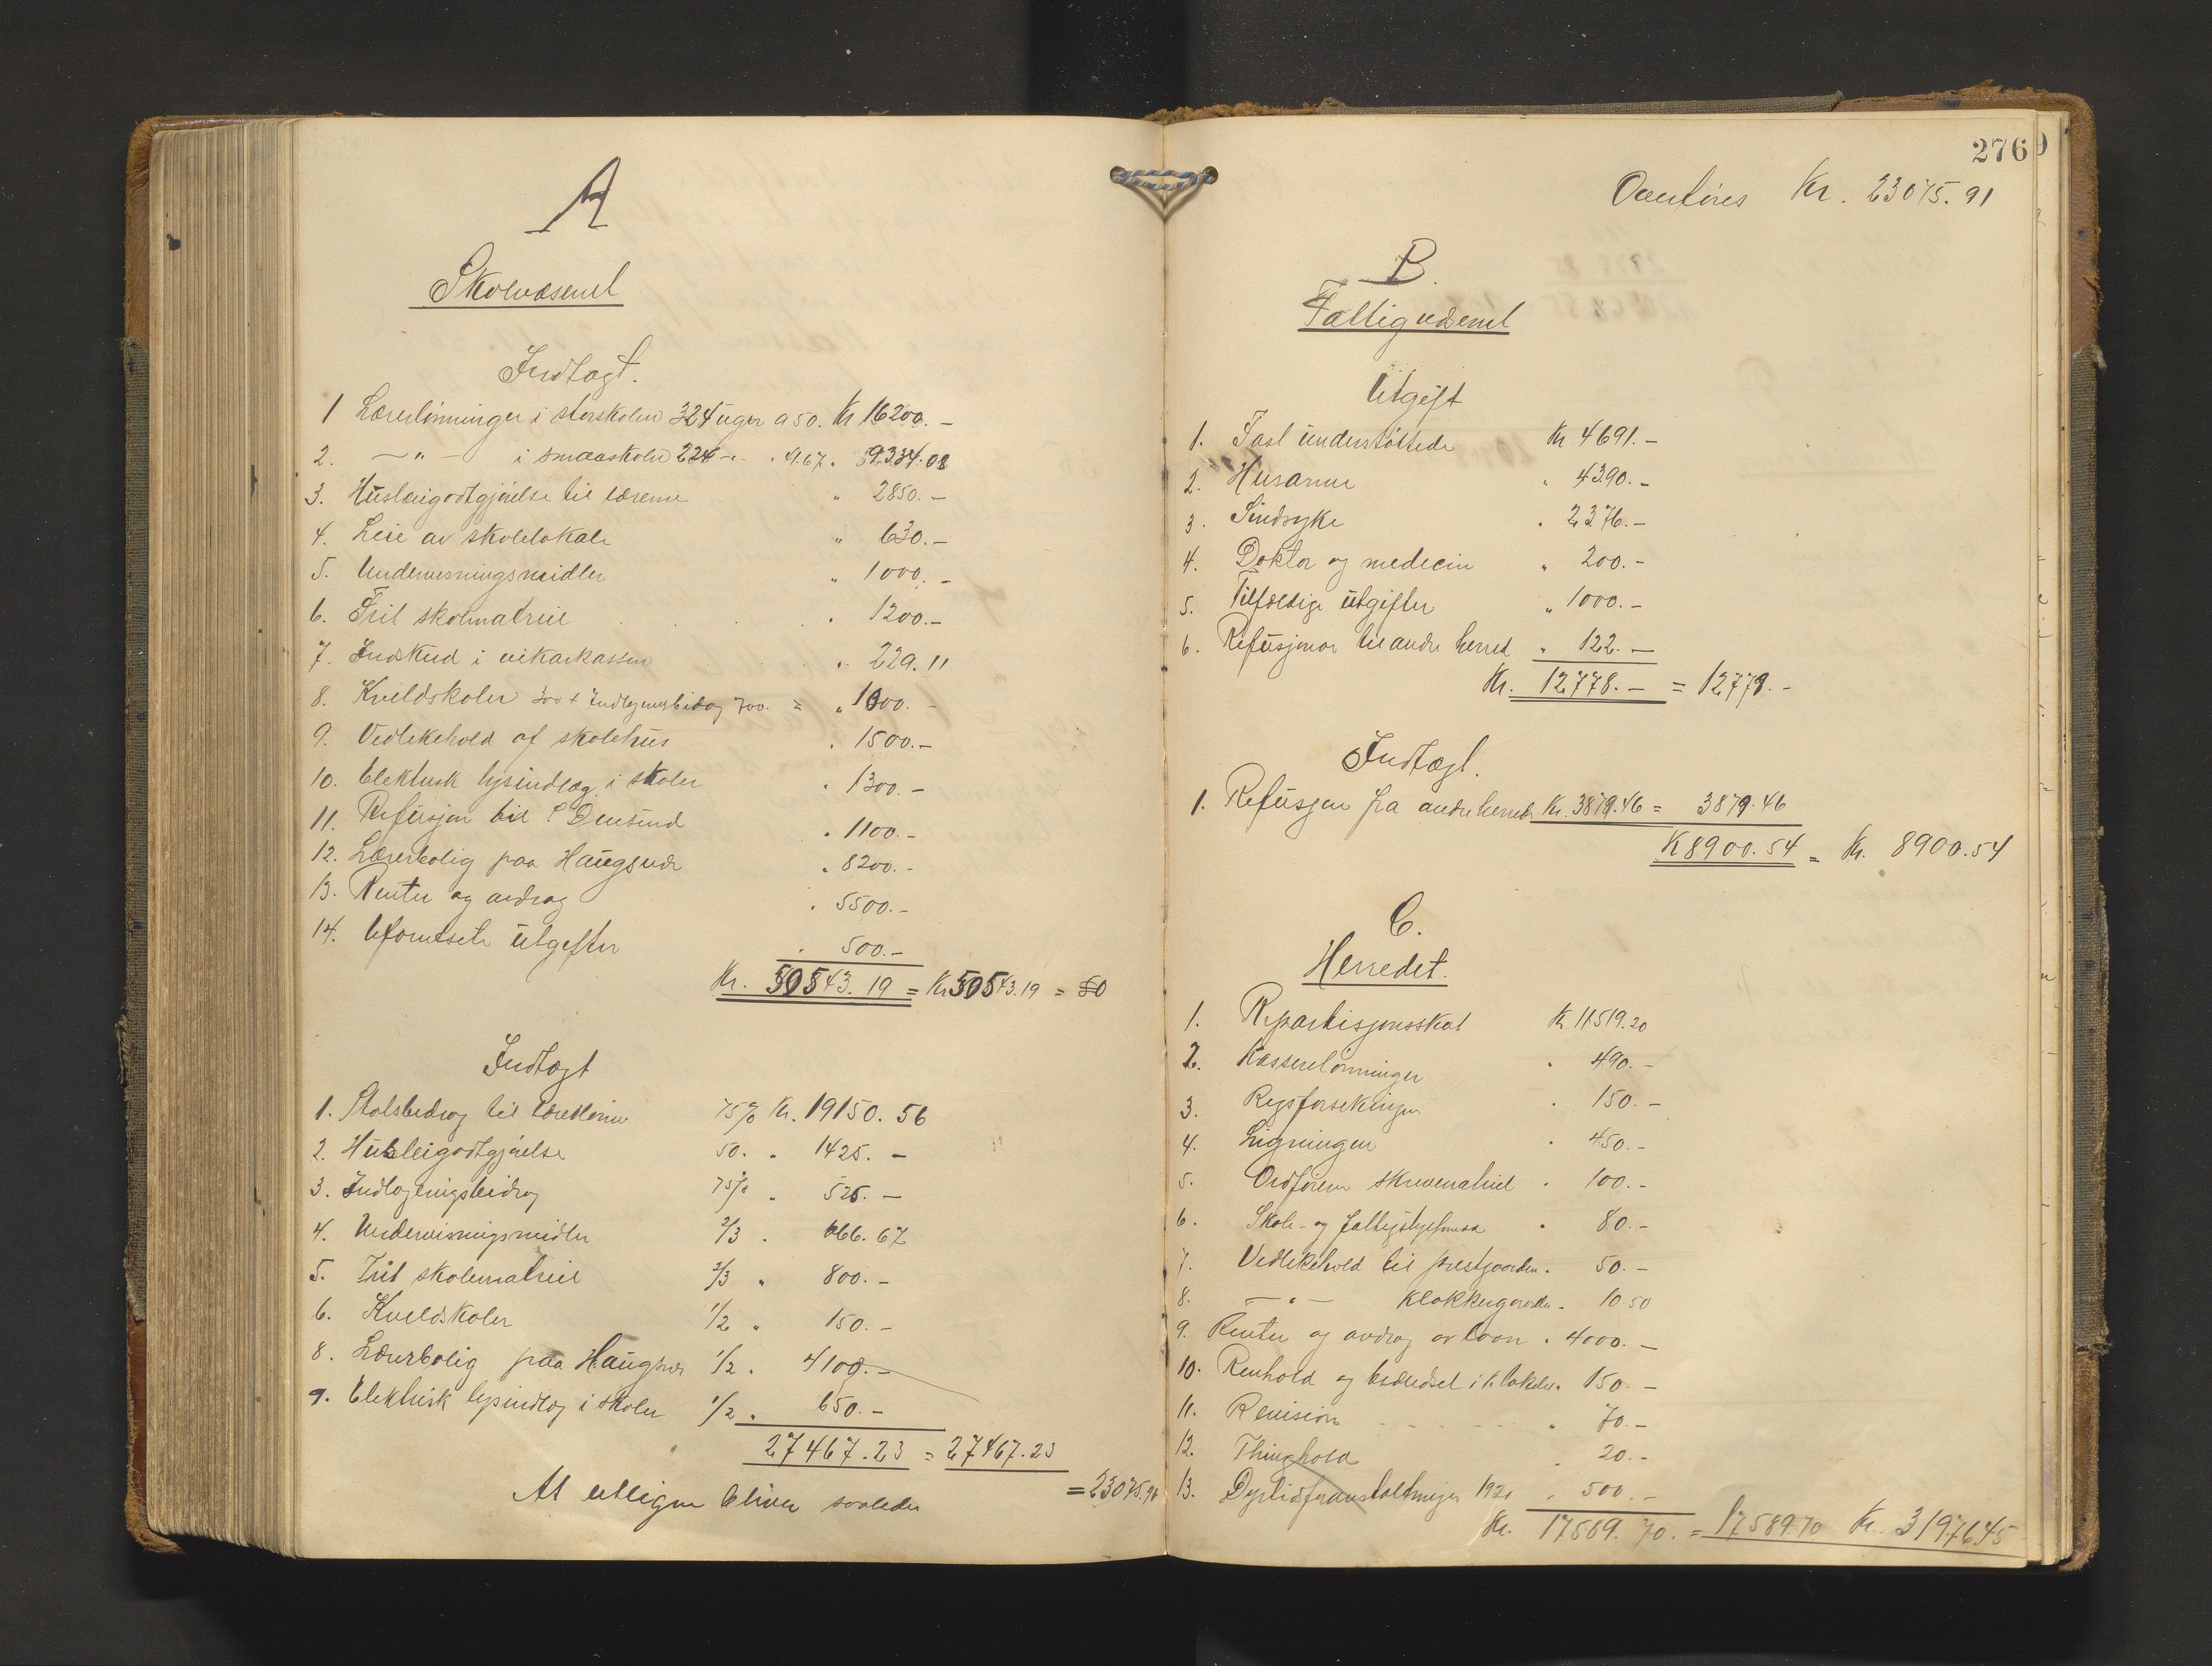 A
Skolvæsenet
Indtægt.
1 Lærerlønninger i storskolen 324 uger a 50. Kr 16200. -
2. - " - i smaaskolen 224 - " - " 41.67 " 9334.08
3. Husleigodtgjørelse til lærerne " 2850. -
4. Leie av skolelokale " 630. -
5. Undervisningsmidler " 1000. -
6. Frit skolmatriel " 1200. -
7. Indskud i vikarkassen " 229.11
8. Kveldskoler 300 + Indlogeringsbidrag 700. = " 1000. -
9. Vedlikehold af skolehus " 1500. -
10. Elektrisk lysindlæg i skoler " 1300. -
11. Refusjon til Ø Ousund " 1100. -
12. Lærerbolig paa Haugsnæs " 8200. -
13. Renter og avdrag " 5500. -
14. Uforutsete utgifter " 500. -
Kr. 50543.19 = Kr 50543.19 = 50
Indtægt
1. Statsbidrag til lærerlønn 75% Kr. 19150.56
2. Husleigodtgjørelse 50 " " 1425. -
3. Indlogeringsbidrag 75% " 525. -
4. Undervisningsmidler 2/3 " 666.67
5. Frit skolematriel 2/3 " 800. -
6. Kveldskoler 1/2 " 150. -
8. Lærerbolig paa Haugsnæs 1/2 " 4100. -
9. Elektrisk lysindlæg i skoler 1/2 " 650. -
27467.23 = 27467.23
At utligne bliver saaledes = 23075.96
276
Overføres Kr. 23075.91
B.
Fattigvæsenet
Utgift
1. Fast understøttede Kr 4691. -
2. Husarme " 4390. -
3. Sindsyke " 2376. -
4. Doktor og medicin " 200. -
5. Tilfældige utgifter " 1000. -
6. Refusjoner til andre herred " 122. -
Kr. 12778. - = 12779. -
Indtægt.
1. Refusjon fra andre herreder Kr. 3879.46 = 3879.46
K 8900.54 = Kr. 8900.54
C.
Herredet.
1. Repartisjonsskat Kr. 11519.20
2. Kassererlønninger " 490. -
3. " 150. -
4. Ligningen " 450. -
5. Ordføreren skrivematriel " 100. -
6. Skole- og fattigstyreformæn " 80. -
7. Vedlikehold til prestgaarden " 50. -
8. - " - Klokkergarden " 10.50
9. Renter og avdrag av laan " 4000. -
10. Renhold og brændsel i k. lokalet " 150. -
11. Revision " 70. -
12. Thinghold " 20. -
13. Dyrtidsforanstaltninger 1921 " 500. -
Kr. 17589.70. = 17589.70 Kr. 31976.45